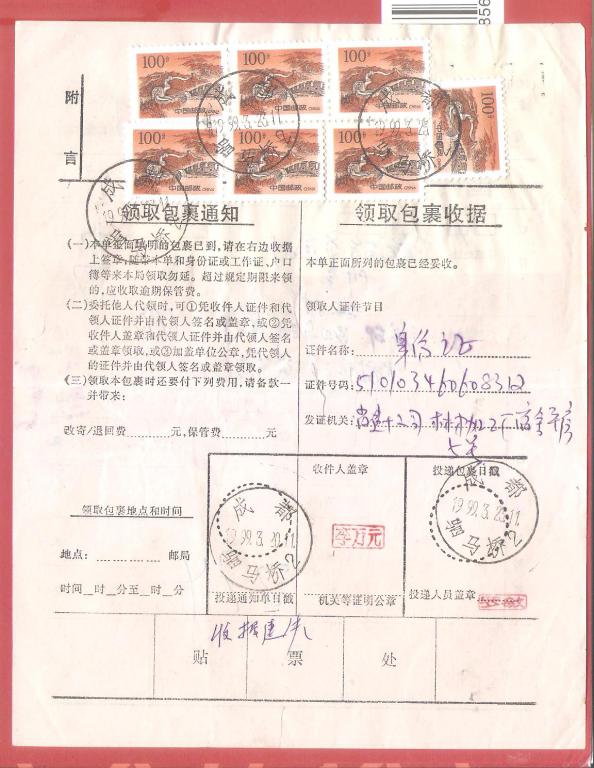 856
附言
100分
中国邮政 CHINA
100分
中国邮政 CHINA
100分
中国邮政 CHINA
100分
中国邮政 CHINA
100分
中国邮政 CHINA
100分
中国邮政 CHINA
100分
中国邮政 CHINA
领取包裹通知
(一)本单正面所列的包裹已到,请在右边收据
上签章,随带本单和身份证或工作证、户口
簿等来本局领取勿延。超过规定期限来领
的,应收取逾期保管费。
(二)委托他人代领时,可①凭收件人证件和代
领人证件并由代领人签名或盖章,或②凭
收件人盖章和代领人证件并由代领人签名
或盖章领取,或③加盖单位公章,凭代领人
的证件并由代领人签名或盖章领取。
(三)领取本包裹时还要付下列费用,请备款一
并带来:
改寄/退回费 元,保管费 元
领取包裹收据
本单正面所列的包裹已经妥收。
领取人证件节目
证件名称: 身份证
证件号码: 510103460608312
发证机关:
领取包裹地点和时间
地点: 邮局
时间 时 分至 时 分
成都
1999.3.20.11
桥2
投递通知单日戳
收件人盖章
机关等证明公章
投递包裹日戳
成都
桥2
投递人员盖章
收据遗失
贴票处